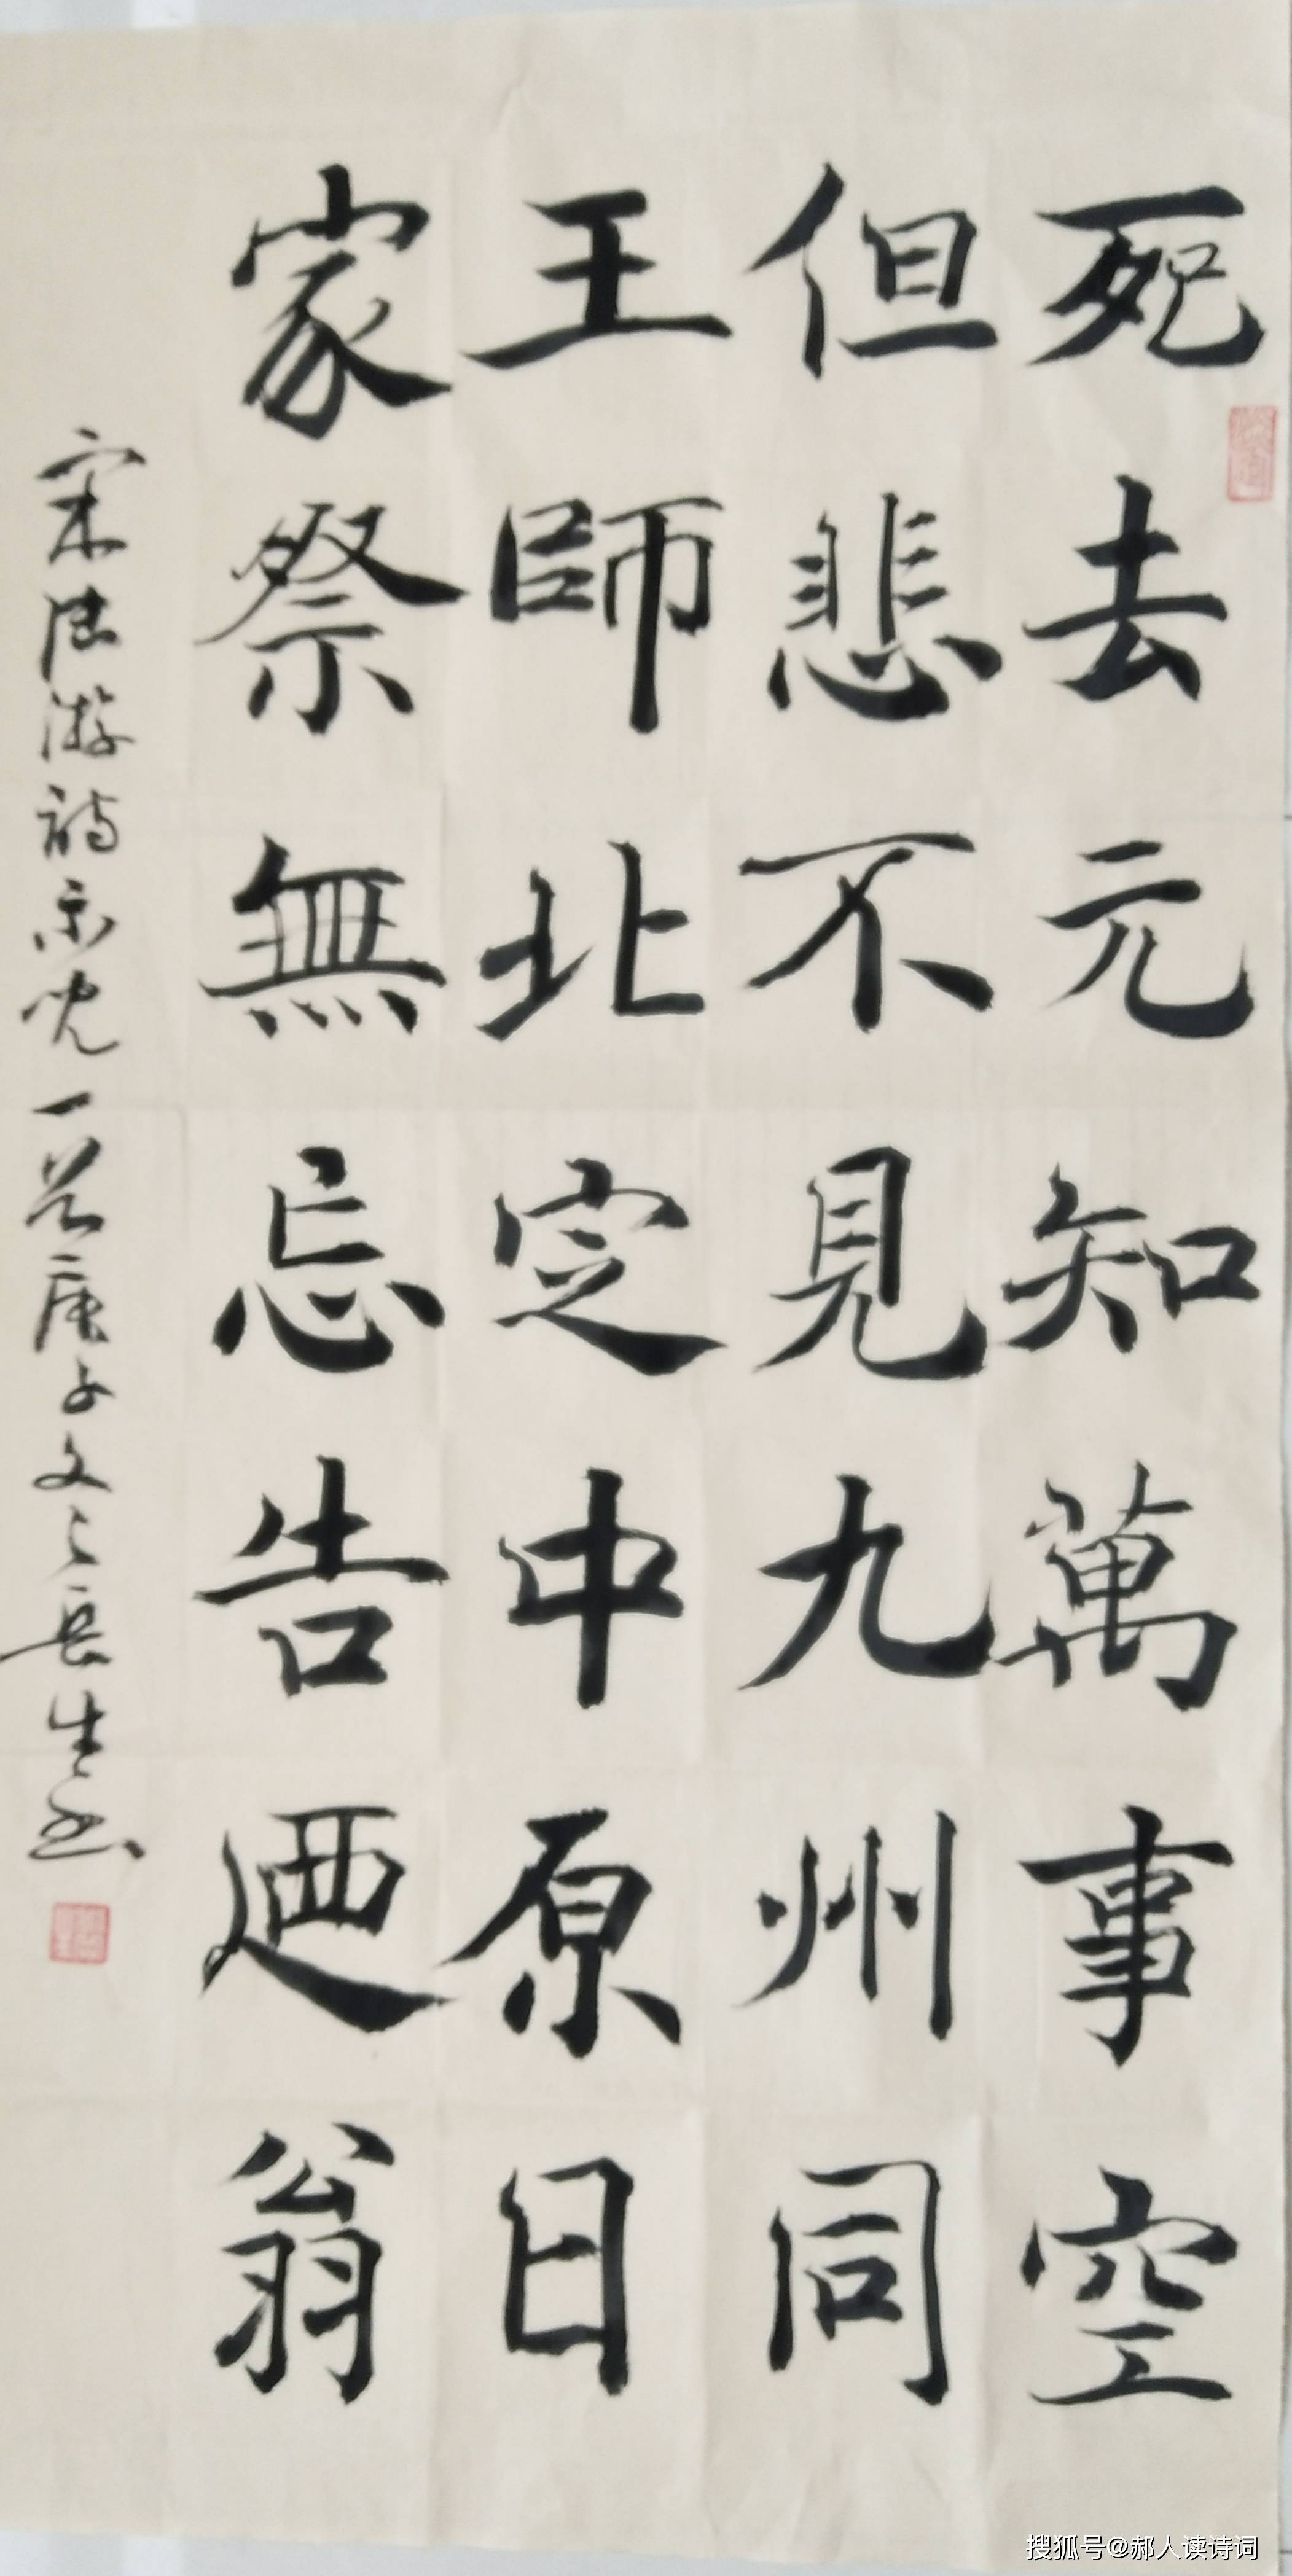 死去元知萬事空
但悲不見九州同
王師北定中原日
家祭無忘告迺翁
宋陸游詩示兒一首庚子文之長生書
搜狐号@郝人读诗词